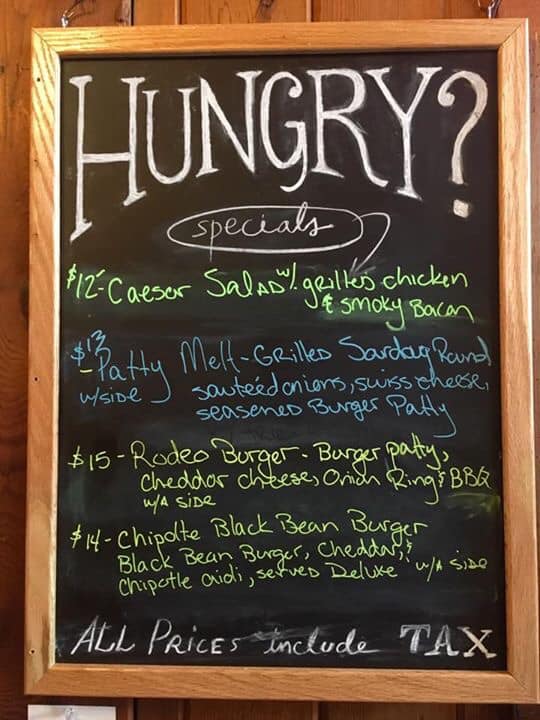 HUNGRY?
specials
$12- Caeser Salad w/ grilled chicken
& smoky Bacon
$13 - Patty Melt - Grilled Sourdog Round
w/side sauteéd onions, swiss cheese,
seasened Burger Patty
$15 - Rodeo Burger - Burger patty,
cheddar cheese, Onion Ring & BBQ
w/A side
$14 - Chipolte Black Bean Burger
Black Bean Burger, cheddar, &
chipotle aidi, served Deluxe w/A side
ALL PRICES include TAX